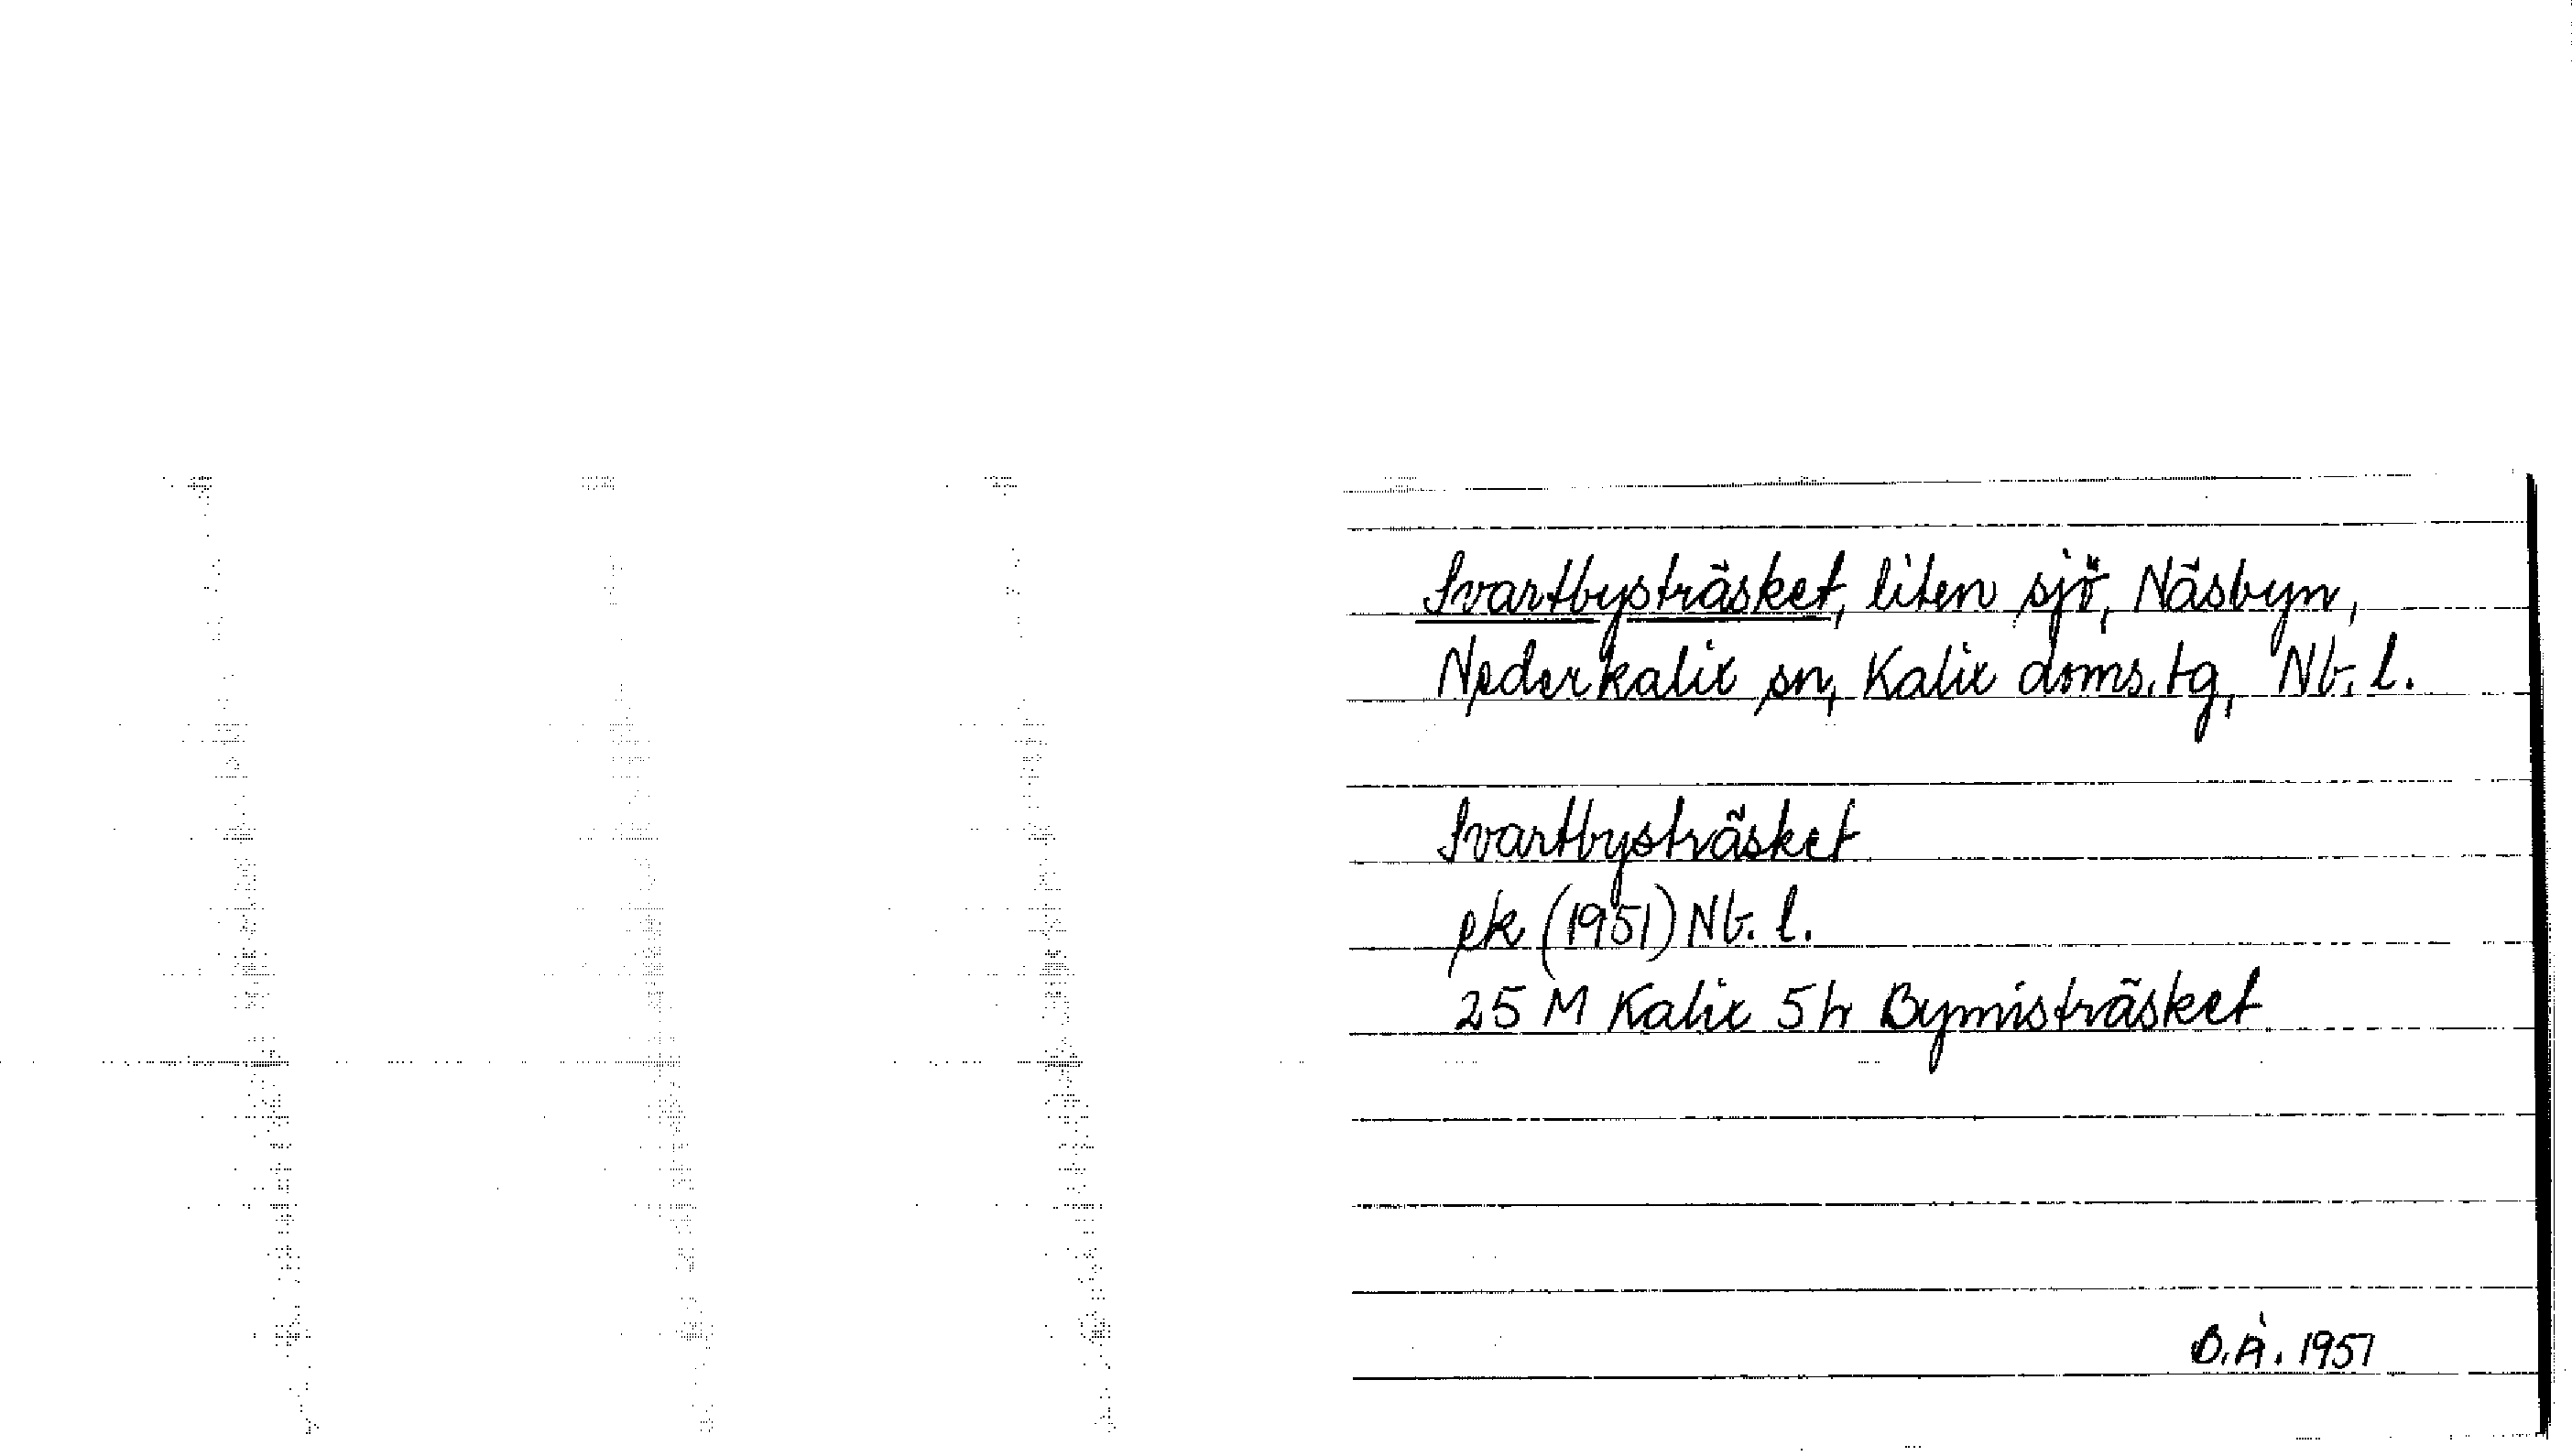 Svartbysträsket, liten sjö, Näsbyn,
Nederkalix sn, Kalix doms.tg, Nb. l.
Svartbysträsket
ek (1951) Nb. l.
25 M Kalix 5 h Bymisträsket
B.Å. 1957